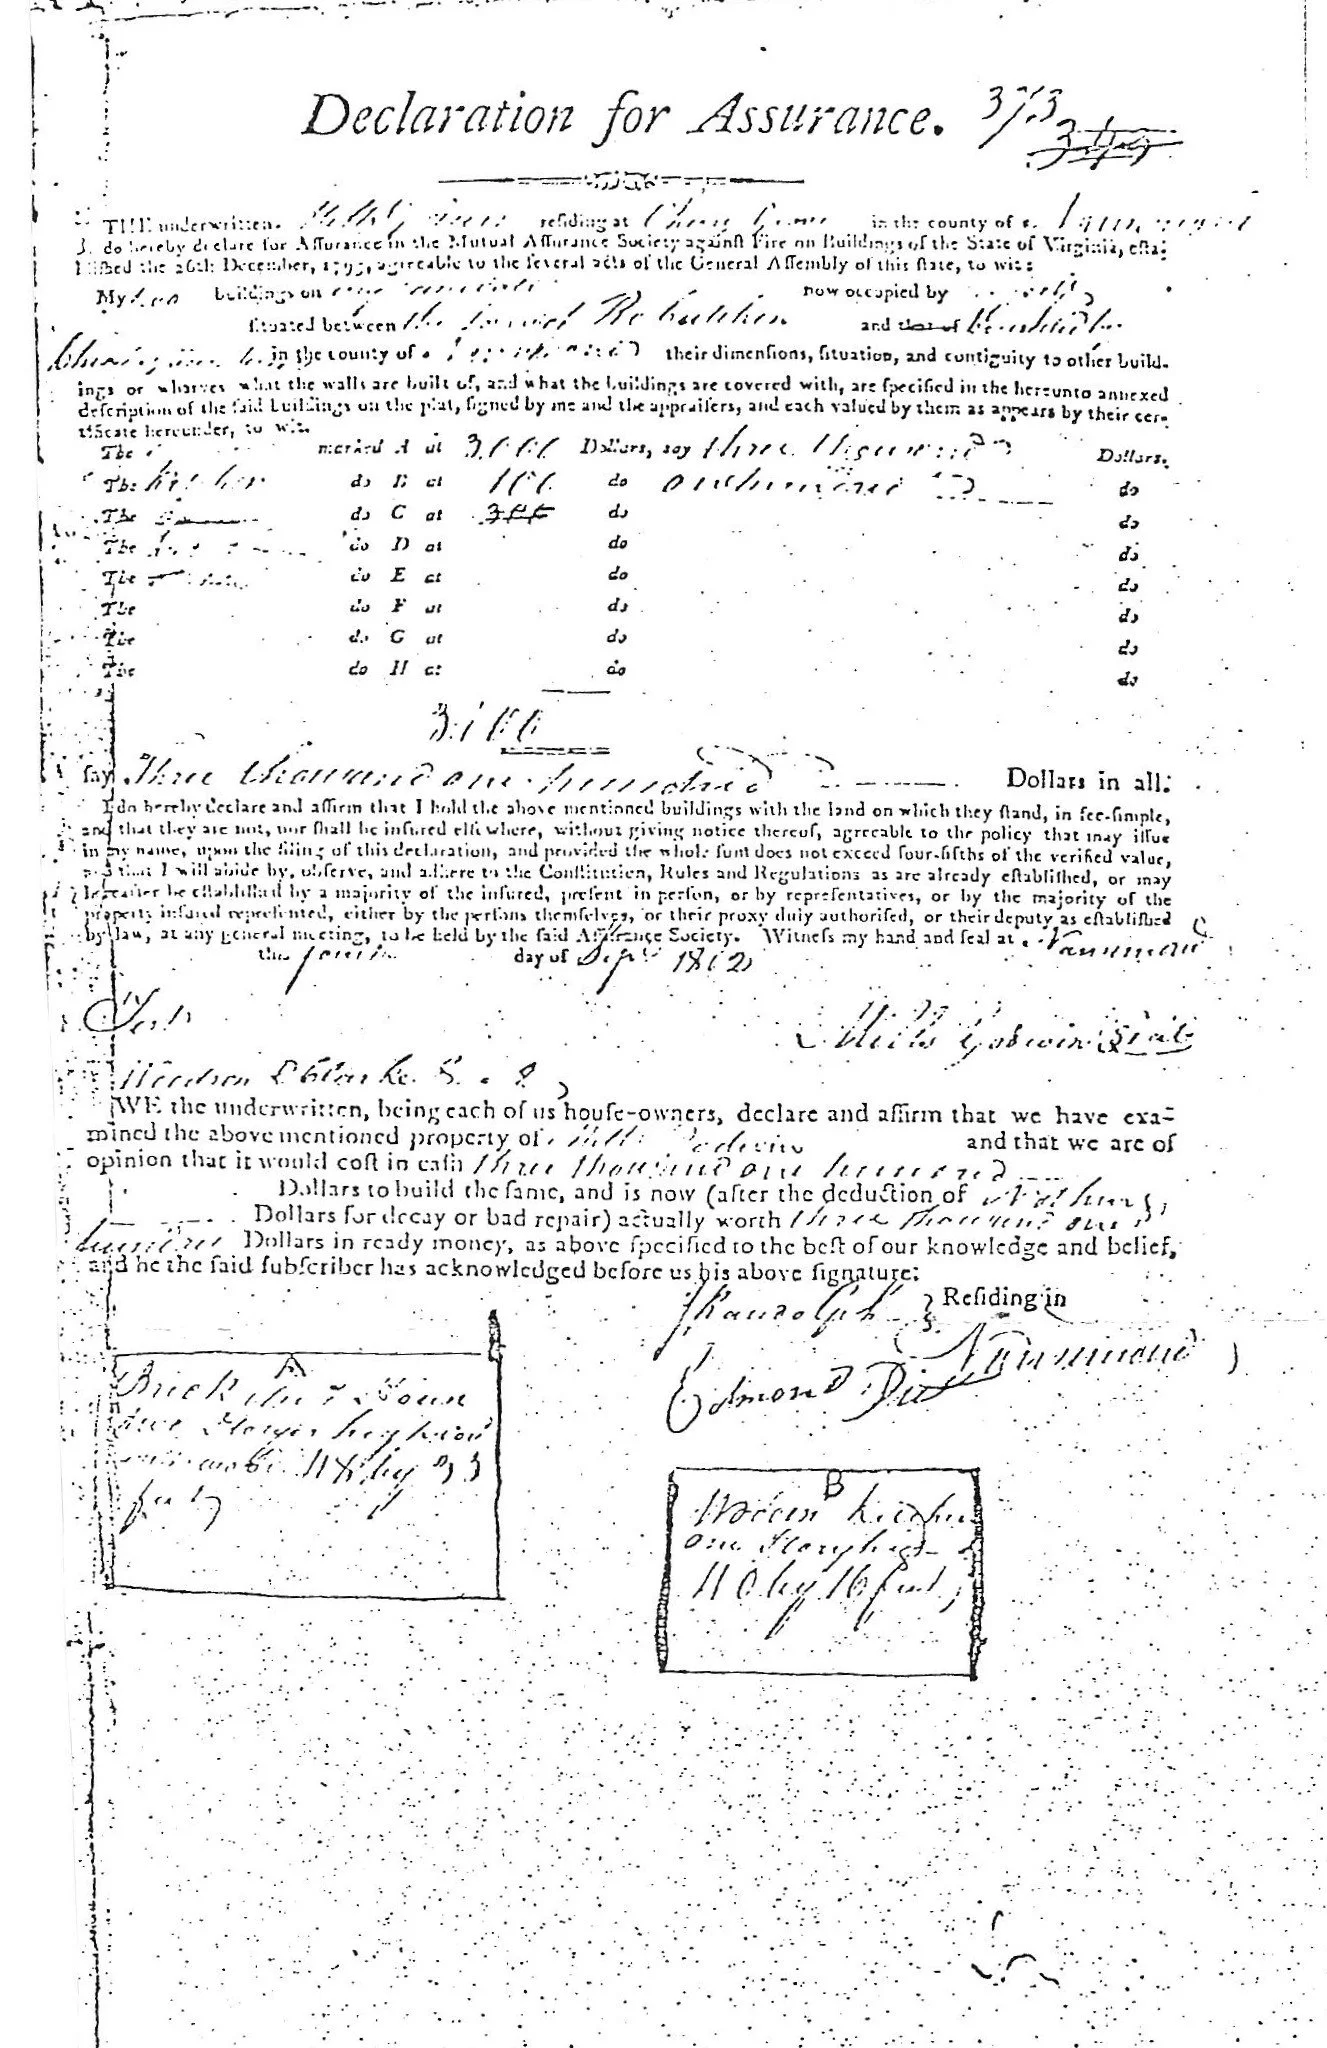 Declaration for Assurance. 373
THE underwritten. Mills Godwin residing at in the county of Nansemond
do hereby declare for Assurance in the Mutual Assurance Society against Fire on Buildings of the State of Virginia, esta-
blished the 26th December, 1795, agreeable to the several acts of the General Assembly of this state, to wit:
My two buildings on now occupied by
situated between the and that of
in the county of Nansemond their dimensions, situation, and contiguity to other build-
ings or wharves what the walls are built of, and what the buildings are covered with, are specified in the hereunto annexed
description of the said buildings on the plat, signed by me and the appraisers, and each valued by them as appears by their cer-
tificate hereunder, to wit.
The marked A at 3,000 Dollars, say three thousand Dollars.
The Kitchen do B at 100 do one hundred do
The do C at 300 do do
The do D at do do
The do E at do do
The do F at do do
The do G at do do
The do H at do do
3100
say Three thousand one hundred Dollars in all:
I do hereby declare and affirm that I hold the above mentioned buildings with the land on which they stand, in fee-simple,
and that they are not, nor shall be insured elsewhere, without giving notice thereof, agreeable to the policy that may issue
in my name, upon the filing of this declaration, and provided the whole sum does not exceed four-fifths of the verified value,
and that I will abide by, observe, and adhere to the Constitution, Rules and Regulations as are already established, or may
hereafter be established by a majority of the insured, present in person, or by representatives, or by the majority of the
property insured represented, either by the persons themselves, or their proxy duly authorised, or their deputy as established
by law, at any general meeting, to be held by the said Assurance Society. Witness my hand and seal at Nansemond
this day of Sept 1802
Mills Godwin Seal
WE the underwritten, being each of us house-owners, declare and affirm that we have exa-
mined the above mentioned property of Mills Godwin and that we are of
opinion that it would cost in cash three thousand one hundred
Dollars to build the same, and is now (after the deduction of Nothing
Dollars for decay or bad repair) actually worth three thousand one
hundred Dollars in ready money, as above specified to the best of our knowledge and belief,
and he the said subscriber has acknowledged before us his above signature:
Randolph Residing in
Edmond Nansemond
A
Brick
two Stories high
48 by 33
feet
B
Wooden Kitchen
one Story high
by 16 feet